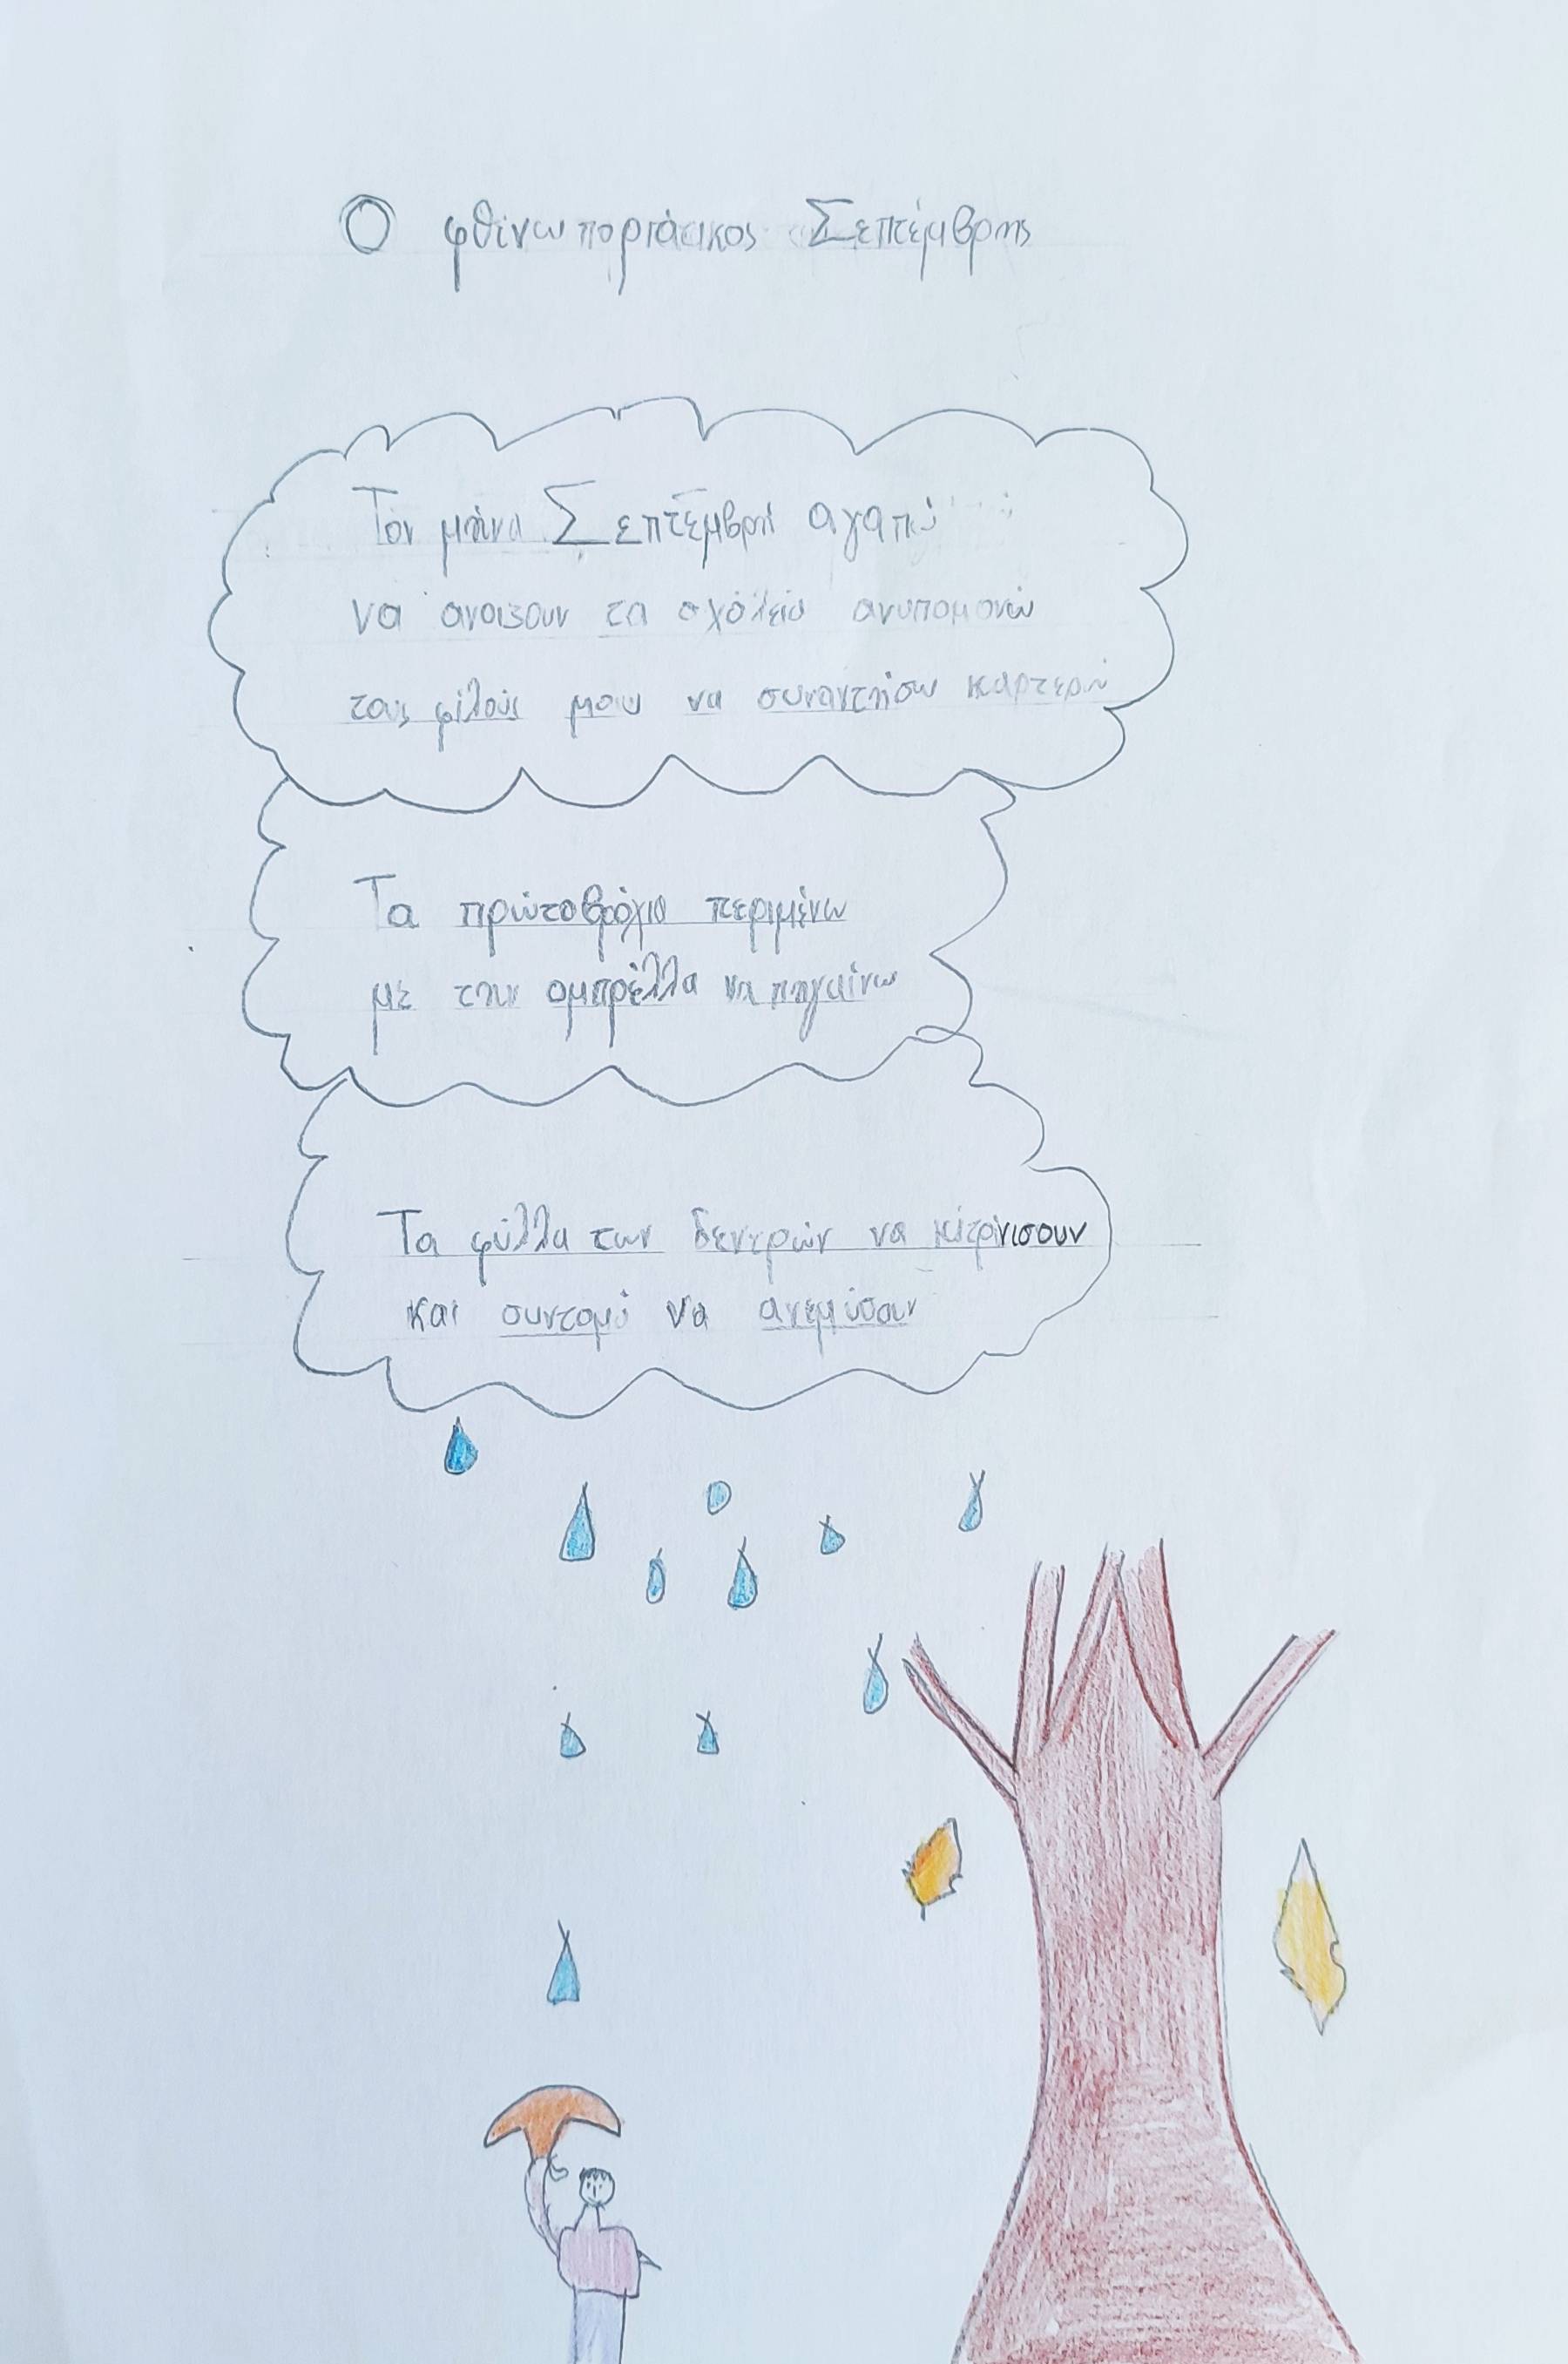 Ο φθινωποριάτικος Σεπτέμβρης
Τον μήνα Σεπτέμβρη αγαπώ
να ανοιξουν τα σχόλεία ανυπομονώ
τους φίλους μου να συναντήσω καρτερώ
Τα πρώτοβρόχια περιμένω
με την ομπρέλλα να πηγαίνω
Τα φύλλα των δεντρών να κιτρίνισουν
και συντομά να ανεμίσουν